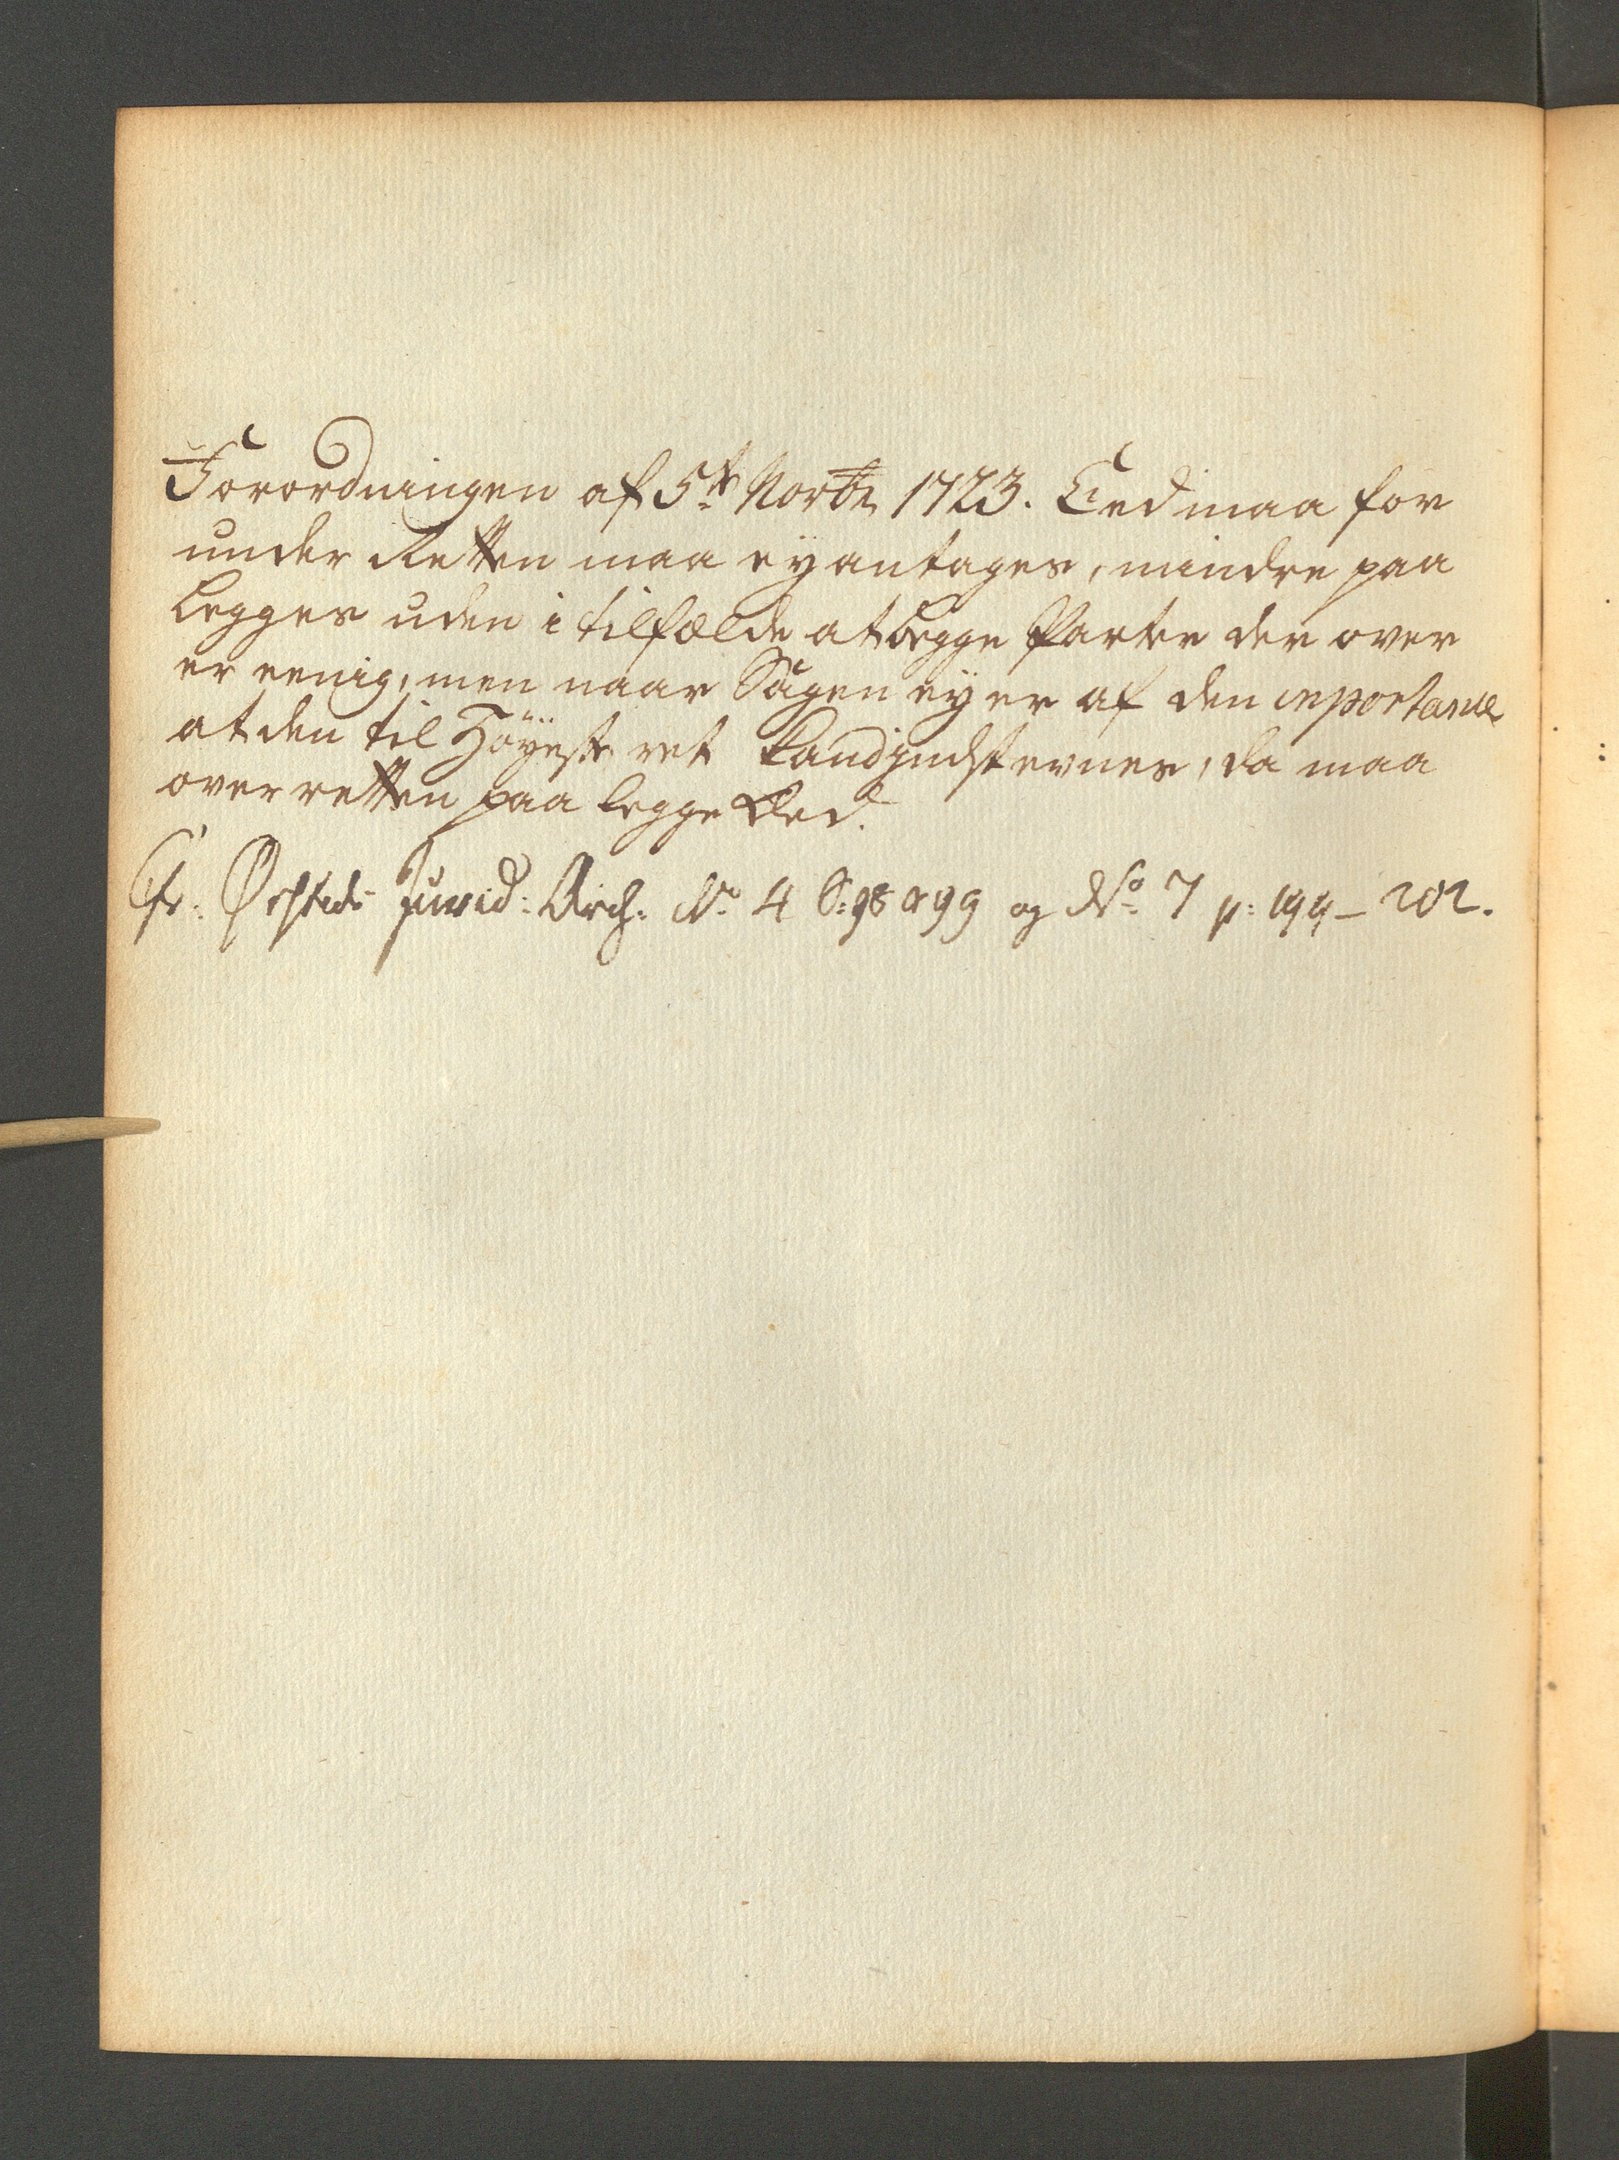 Forordningen af 5te Novbr 1723. Eed maa for
under Retten maa ey antages, mindre paa
legges uden i tilfælde at begge Parter der over
er eenig, men naar Sagen ey er af den inportance
at den til Höyeste ret kand indstevnes, da maa
over retten paa legge Eed.
Cfr: Ørsteds Jurid: Arch: No 4 S: 98 & 99 og No 7 p: 199 – 202.